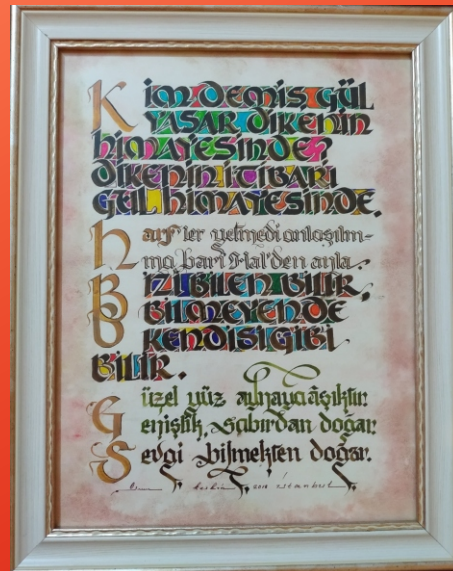 Kim demiş gül
yaşar dikenin
himayesinde?
dikenin itibarı
gül himayesinde.
Harf'ler yetmedi anlaşılm-
ma, bari Hal'den anla.
Bizi bilen bilir,
Bilmeyende
kendisi gibi
bilir.
Güzel yüz aynaya âşıktır.
erişkinlik, sabırdan doğar.
Sevgi bilmekten doğar.
2016 istanbul